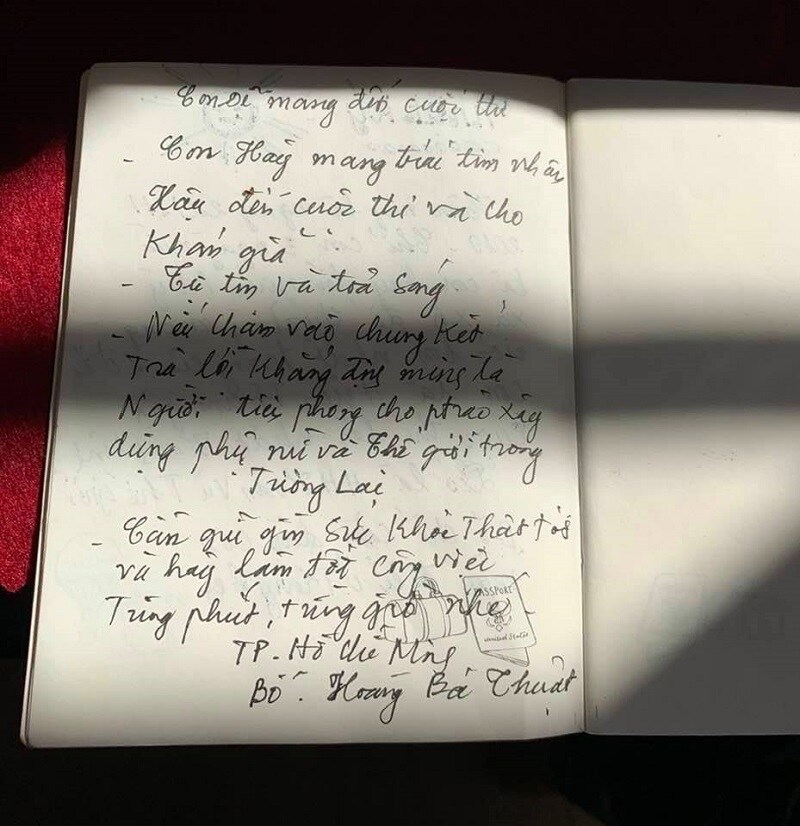 Con sẽ mang đến cuộc thi
- Con Hãy mang trái tim nhân
Hậu đến cuộc thi và cho
Khán giả
- Tự tin và toả sáng
- Nếu chạm vào chung kết
Trả lời Khẳng định mình là
Người tiên phong cho ptrào xây
dựng phụ nữ và Thế giới trong
Tương Lai
- Cần giữ gìn sức khoẻ Thật tốt
và hãy làm tốt công việc
Từng phút, từng giờ nhé
PASSPORT
United States
TP. Hồ Chí Minh
Bố. Hoàng Bá Thuật